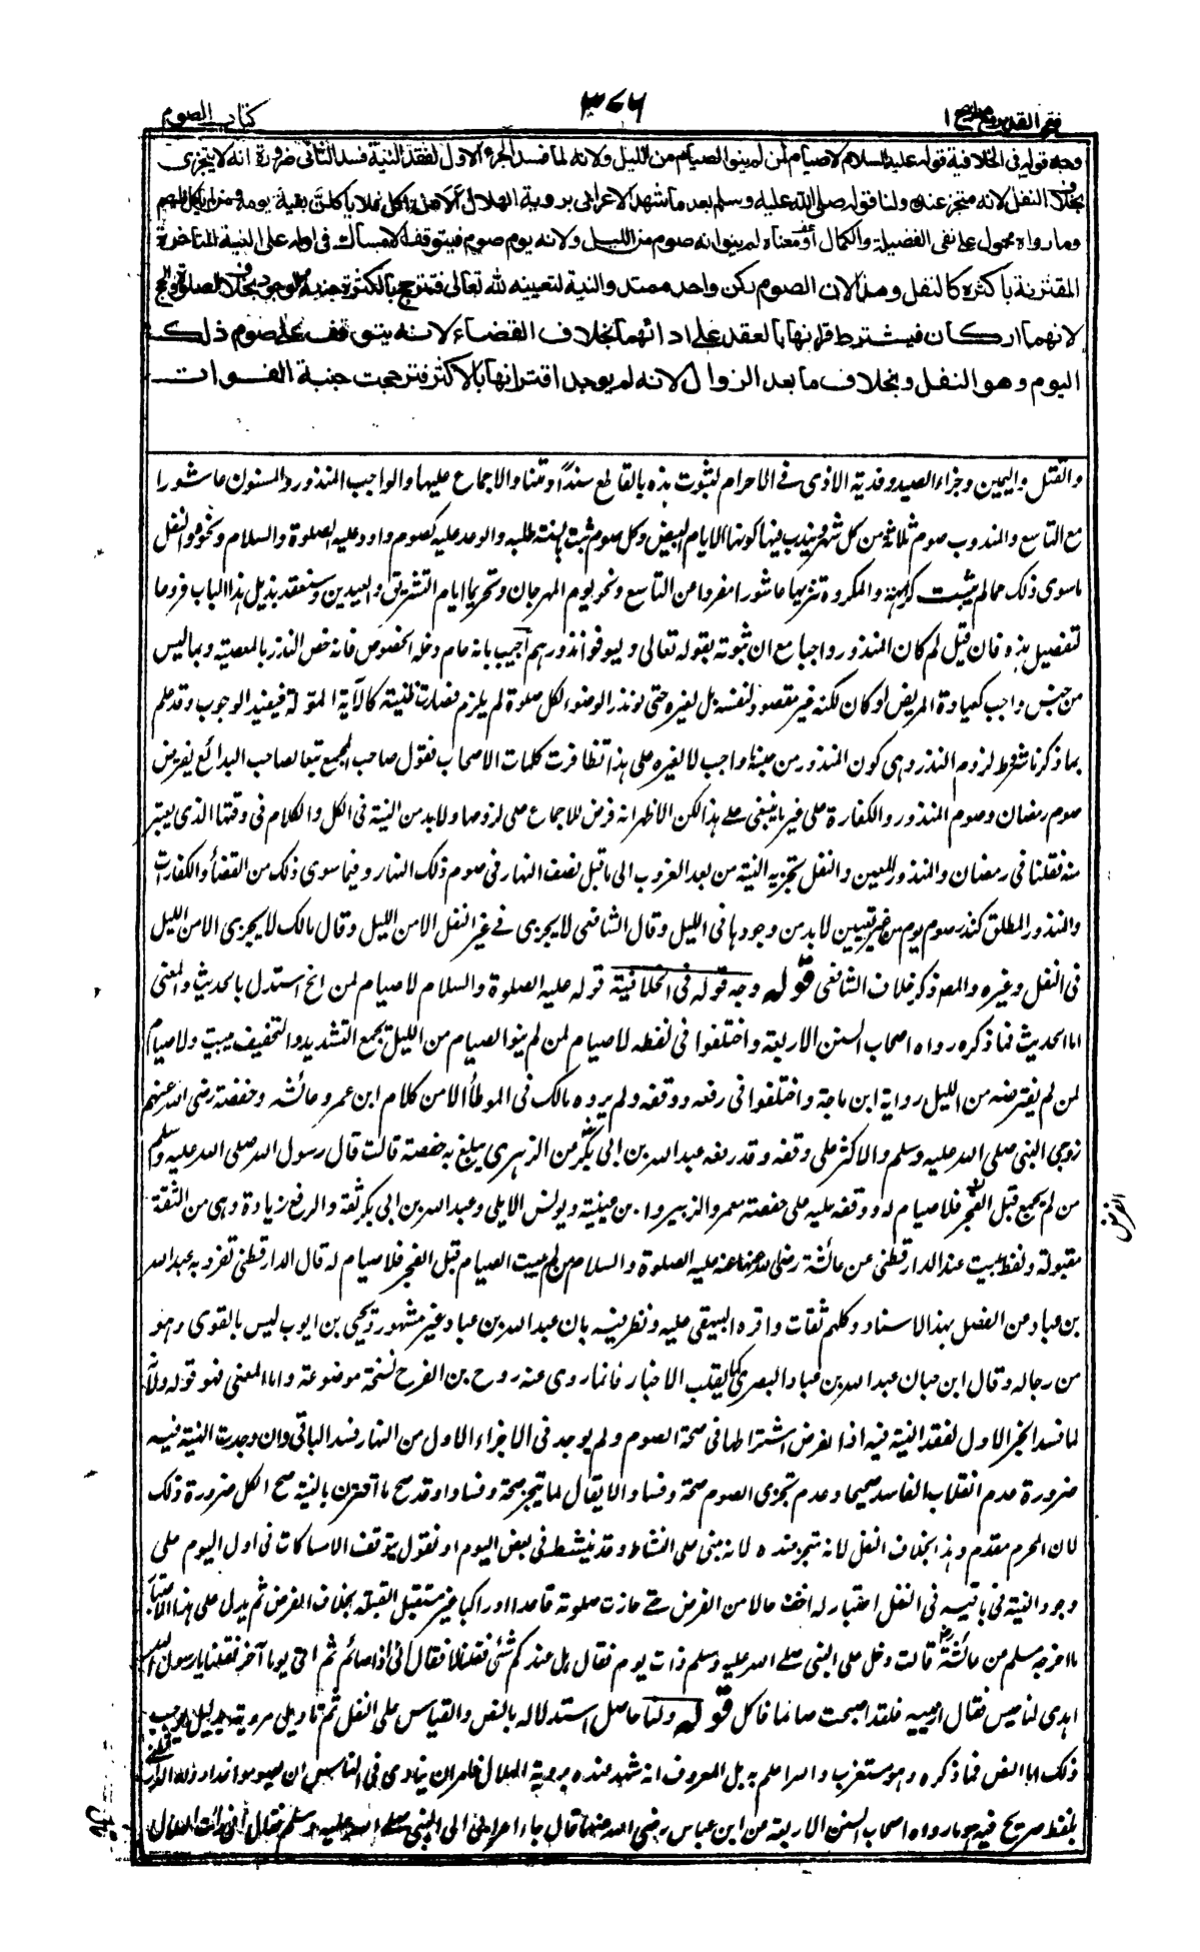 فتح القدير مع هداية ج ١
٣٧٦
كتاب الصوم
وجه قوله فى الخلافية قوله عليه السلام لا صيام لمن لم ينو الصيام من الليل ولانه لما فسد الجزء الاول لفقد النية فسد الثانى ضرورة انه لا يتجزى
بخلاف النفل لانه متجزعنده ولنا قوله صلى الله عليه وسلم بعد ما شهد الاعرابى بروية الهلال ألا من اكل فلا ياكلن بقية يومه ومن لم ياكل فليصم
وما رواه محمول على نفى الفضيلة والكمال أو معناه لم ينو انه صوم من الليل ولانه يوم صوم فيتوقف الامساك فى اوله على النية المتاخرة
المقترنة باكثره كالنفل وهذا لان الصوم ركن واحد ممتد والنية لتعيينه لله تعالى فتترجح بالكثرة جنبة الوجود بخلاف الصلوة والحج
لانهما اركان فيشترط قرانها بالعقد على ادائهما بخلاف القضاء لانه يتوقف على صوم ذلك
اليوم وهو النفل وبخلاف ما بعد الزوال لانه لم يوجد اقترانها بالاكثر فترجحت جنبة الفوات
والقتل واليمين وجزاء الصيد وفدية الاذى فى الاحرام لثبوت هذه بالقاطع سندًا ومتنا والاجماع عليها والواجب المنذور والمسنون عاشورا
مع التاسع والمندوب صوم ثلاثة من كل شهر ويندب فيها كونها الايام البيض وكل صوم ثبت بالسنة طلبه والوعد عليه كصوم داود عليه الصلوة والسلام ونحوه والنفل
ما سوى ذلك مما لم يثبت كراهته والمكروه تنزيها عاشورا مفردا عن التاسع ونحو يوم المهرجان وتحريما ايام التشريق والعيدين وسنعقد بذيل هذا الباب فروعا
لتفصيل هذه فان قيل لم كان المنذور واجبا مع ان ثبوته بقوله تعالى وليوفوا نذورهم أجيب بانه عام دخله الخصوص فانه خص النذر بالمعصية وبما ليس
من جنسه واجب كعيادة المريض او كان لكنه غير مقصود لنفسه بل لغيره حتى لو نذر الوضوء لكل صلوة لم يلزم فصارت ظنية كالآية المؤولة فيفيد الوجوب وقد علم
بما ذكرنا شروط لزوم النذر وهى كون المنذور من جنسه واجب لا لغيره على هذا تظافرت كلمات الاصحاب فقول صاحب المجمع تبعا لصاحب البدائع يفرض
صوم رمضان وصوم المنذور والكفارة على غير ما ينبغى على هذا لكن الاظهر انه فرض للاجماع على لزومه ولا بد من النية فى الكل والكلام فى وقتها الذى يعتبر
منه فقلنا فى رمضان والمنذور المعين والنفل تجزيه النية من بعد الغروب الى ما قبل نصف النهار فى صوم ذلك النهار وفيما سوى ذلك من القضاء والكفارات
والمنذور المطلق كنذر صوم يوم من غير تعيين لا بد من وجودها فى الليل وقال الشافعى لا يجزى فى غير النفل الا من الليل وقال مالك لا يجزى الا من الليل
فى النفل وغيره والمصنف ذكر خلاف الشافعى قوله وجه قوله فى الخلافية قوله عليه الصلوة والسلام لا صيام لمن الخ استدل بالحديث والمعنى
اما الحديث فما ذكره رواه اصحاب السنن الاربعة واختلفوا فى لفظه لا صيام لمن لم ينو الصيام من الليل يجمع التشديد والتخفيف يبيت ولا صيام
لمن لم يفترضه من الليل رواية ابن ماجة واختلفوا فى رفعه ووقفه ولم يروه مالك فى الموطأ الا من كلام ابن عمر وعائشه وحفصة رضى الله عنهم
زوجى النبى صلى الله عليه وسلم والاكثر على وقفه وقد رفعه عبد الله بن ابى بكر عن الزهرى يبلغ به حفصة قالت قال رسول الله صلى الله عليه وسلم
من لم يجمع قبل الفجر فلا صيام له ووقفه عليه على حفصة معمر والزبيرى وابن عيينة ويونس الايلى وعبد الله بن ابى بكر ثقة والرفع زيادة وهى من الثقة
مقبولة ولفظ يبيت عند الدارقطنى عن عائشة رضى الله عنها عنه عليه الصلوة والسلام من لم يبيت الصيام قبل الفجر فلا صيام له قال الدارقطنى تفرد به عبد الله
بن عباد عن المفضل بهذا الاسناد وكلهم ثقات واقره البيهقى عليه ونظر فيه بان عبد الله بن عباد غير مشهور ويحيى بن ايوب ليس بالقوى وهو
من رجاله وقال ابن حبان عبد الله بن عباد البصرى يقلب الاخبار فانما روى عنه روح بن الفرج نسخة موضوعة واما المعنى فهو قوله ولانه
لما فسد الجزء الاول لفقد النية فيه اذ الفرض اشتراطها فى صحة الصوم ولم يوجد فى الاجزاء الاول من النهار فسد الباقى وان وجدت النية فيه
ضرورة عدم انقلاب الفاسد صحيحا وعدم تجزى الصوم صحة وفسادا لا يقال لما يتجز صحة وفسادا وقد صح ما اقترن بالنية صح الكل ضرورة ذلك
لان المحرم مقدم وهذا بخلاف النفل لانه متجز عنده لانه مبنى على النشاط وقد ينشط فى بعض اليوم او نقول يتوقف الامساكات فى اول اليوم على
وجود النية فى باقيه فى النفل اعتبار له اخف حالا من الفرض حتى جازت صلوته قاعدا او راكبا غير مستقبل القبلة بخلاف الفرض ثم يدل على هذا
ما اخرجه مسلم عن عائشة قالت دخل على النبى صلى الله عليه وسلم ذات يوم فقال هل عندكم شئى فقلنا لا فقال انى اذا صائم ثم اتى يوما آخر فقلنا يا رسول الله
اهدى لنا حيس فقال ارينيه فلقد اصبحت صائما فاكل قوله ولنا حاصل استدلاله بالنص والقياس على النفل ثم تاويل مرويه بدليل يوجب
ذلك اما النص فما ذكره وهو مستغرب والله اعلم به بل المعروف انه شهد عنده بروية الهلال فامر ان ينادى فى الناس ان يصوموا غدا رواه الدارقطنى
بلفظ صريح فيه وهو ما رواه اصحاب السنن الاربعة من ابن عباس رضى الله عنهما قال جاء اعرابى الى النبى صلى الله عليه وسلم فقال انى رأيت الهلال
الفرض